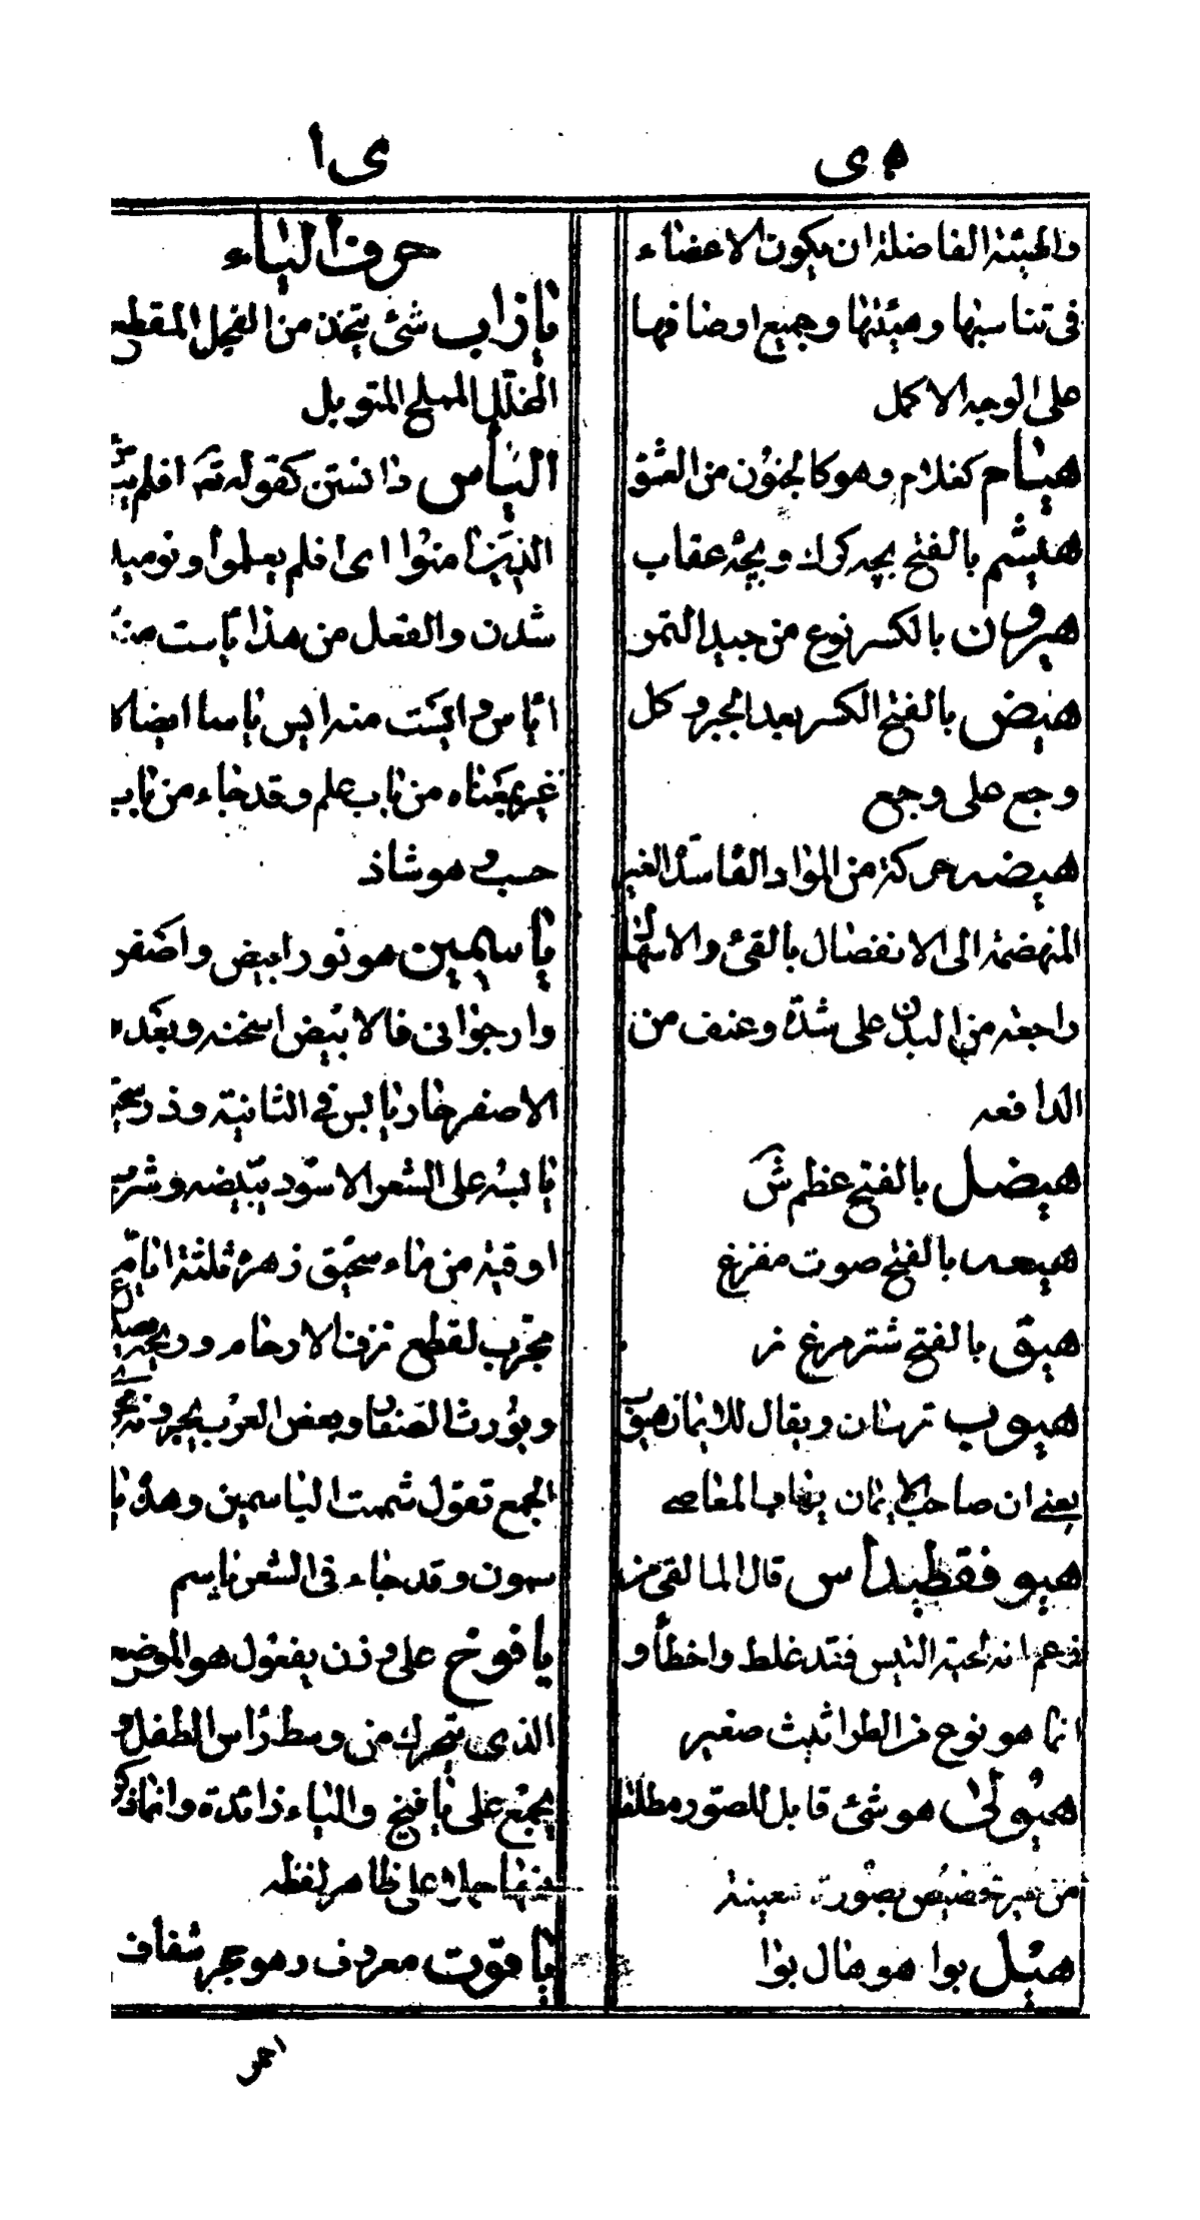 ه ی
والهیئة الفاضلة ان یکون الاعضاء
فی تناسبها وهیئتها وجمیع اوضافها
علی الوجه الاکمل
هیام کغلام وهو کالجنون من العشق
هیشم بالفتح بچه کرک وبچه عقاب
هیرون بالکسر نوع من جید التمر
هیض بالفتح الکسر بعد الجبر وکل
وجع علی وجع
هیضه حرکة من المواد الفاسدة الغیر
المنهضمة الی الانفصال بالقئ والاسهال
راجعه من البدن علی شدة وعنف من
الدافعه
هیضل بالفتح عظم ش
هیعه بالفتح صوت مفزغ
هیق بالفتح شترمرغ نر
هیوب ترسان ویقال للایمان هیوب
یعنے ان صاحب الایمان یهاب المعاصے
هیوفقطیداس قال المالقی من
زعم انه لحیة التیس فقد غلط واخطأ و
انما هو نوع من الطراثیث صغیر
هیولی هو شئ قابل للصور مطلقا
من غیر تخصیص بصورة معینة
هیل بوا هو هال بوا
ی ا
حرف الیاء
یازاب شئ یتخذ من الفجل المقطع
المخلل المملح المتوبل
الیأس دانستن کقوله تع افلم ییئس
الذین امنوا ای افلم یعلموا ونومید
شدن والفعل من هذا یأست منه
ایأس وایست منه ایس یاسا ایضا
غیر بمعناه من باب علم وقد جاء من باب
حسب وهو شاذ
یاسمین هو نور ابیض واصفر
وارجوانی فالابیض اسخنه وبعده
الاصفر حار یابس فی الثانیة وذر سحیق
یابسه علی الشعر الاسود یبیضه وشرب
اوقیة من ماء سحیق زهره ثلثة ایام
مجرب لقطع نزف الارحام وریحه
ویورث الصفار وبعض العرب یجریه
الجمع تقول شممت الیاسمین وهذه یا
سمون وقد جاء فی الشعر یاسم
یافوخ علی وزن یفعول هو الموضع
الذی یتحرک من وسط رأس الطفل و
یجمع علی یافیخ والیاء زائدة وانما
علی ظاهر لفظه
یاقوت معروف وهو حجر شفاف
احمر